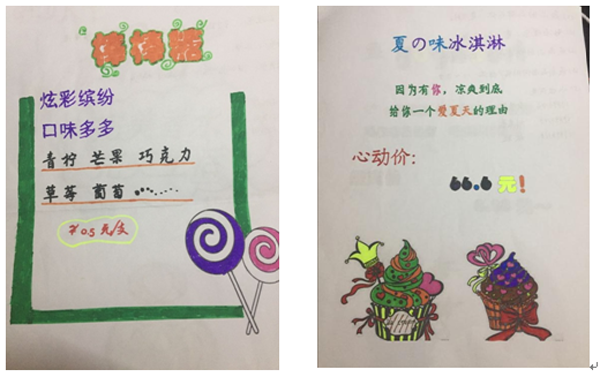 棒棒糖
炫彩缤纷
口味多多
青柠 芒果 巧克力
草莓 葡萄 ……
¥0.5元/支
夏の味冰淇淋
因为有你，凉爽到底
给你一个爱夏天的理由
心动价：
66.6元！